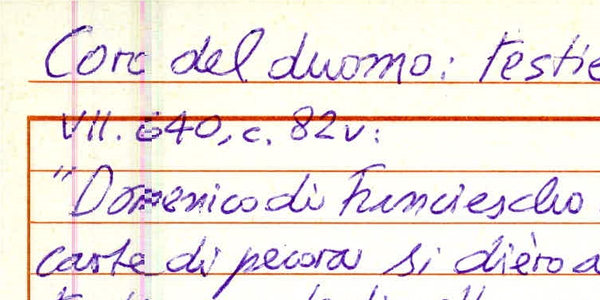 Coro del duomo: testie
VII. 640, c. 82v:
"Domenico di Francescho
carte di pecora si dièro a